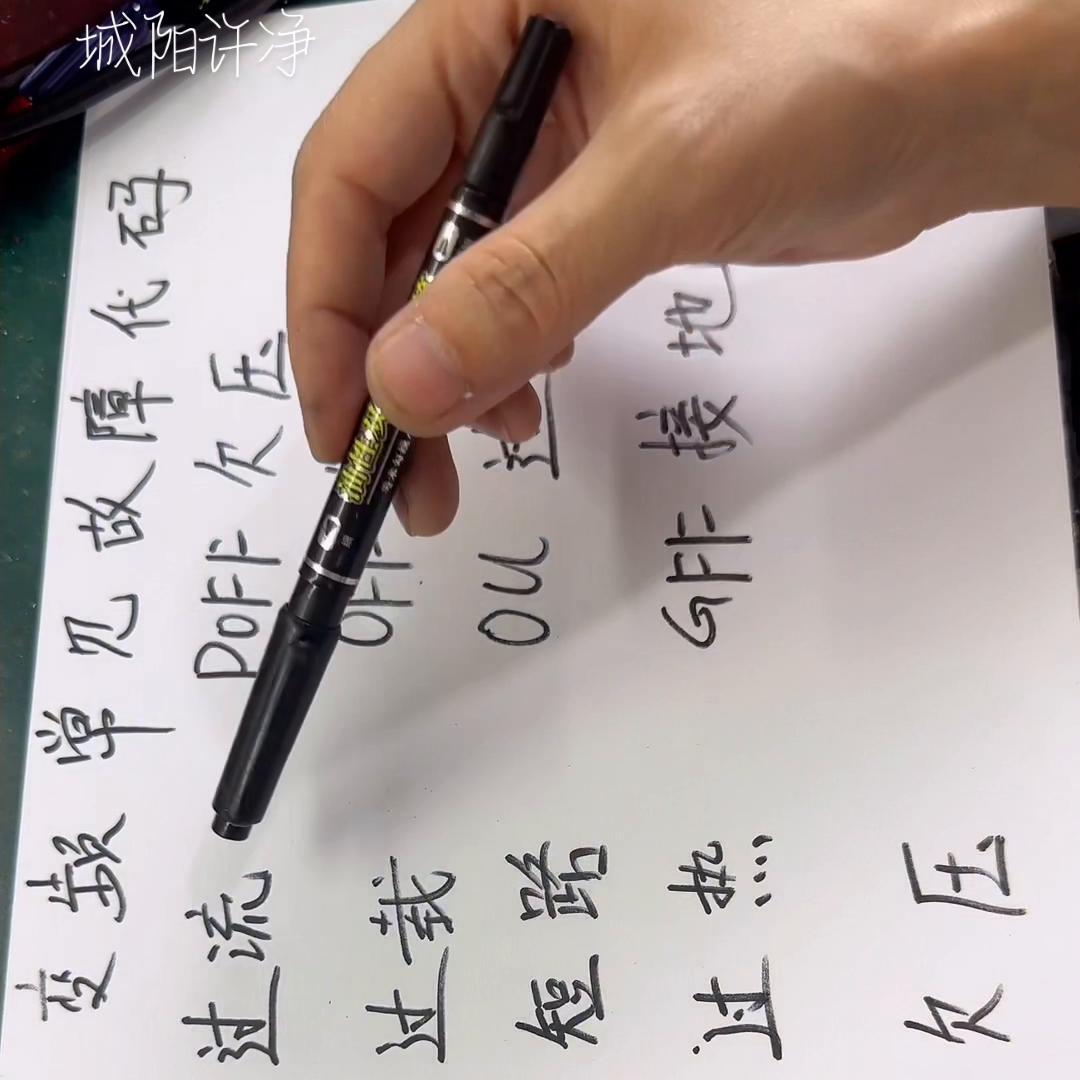 城阳许净
变频常见故障代码
过流 POFF 欠压
过载 OFF
短路 OU 过
过热 GFF 接地
欠压